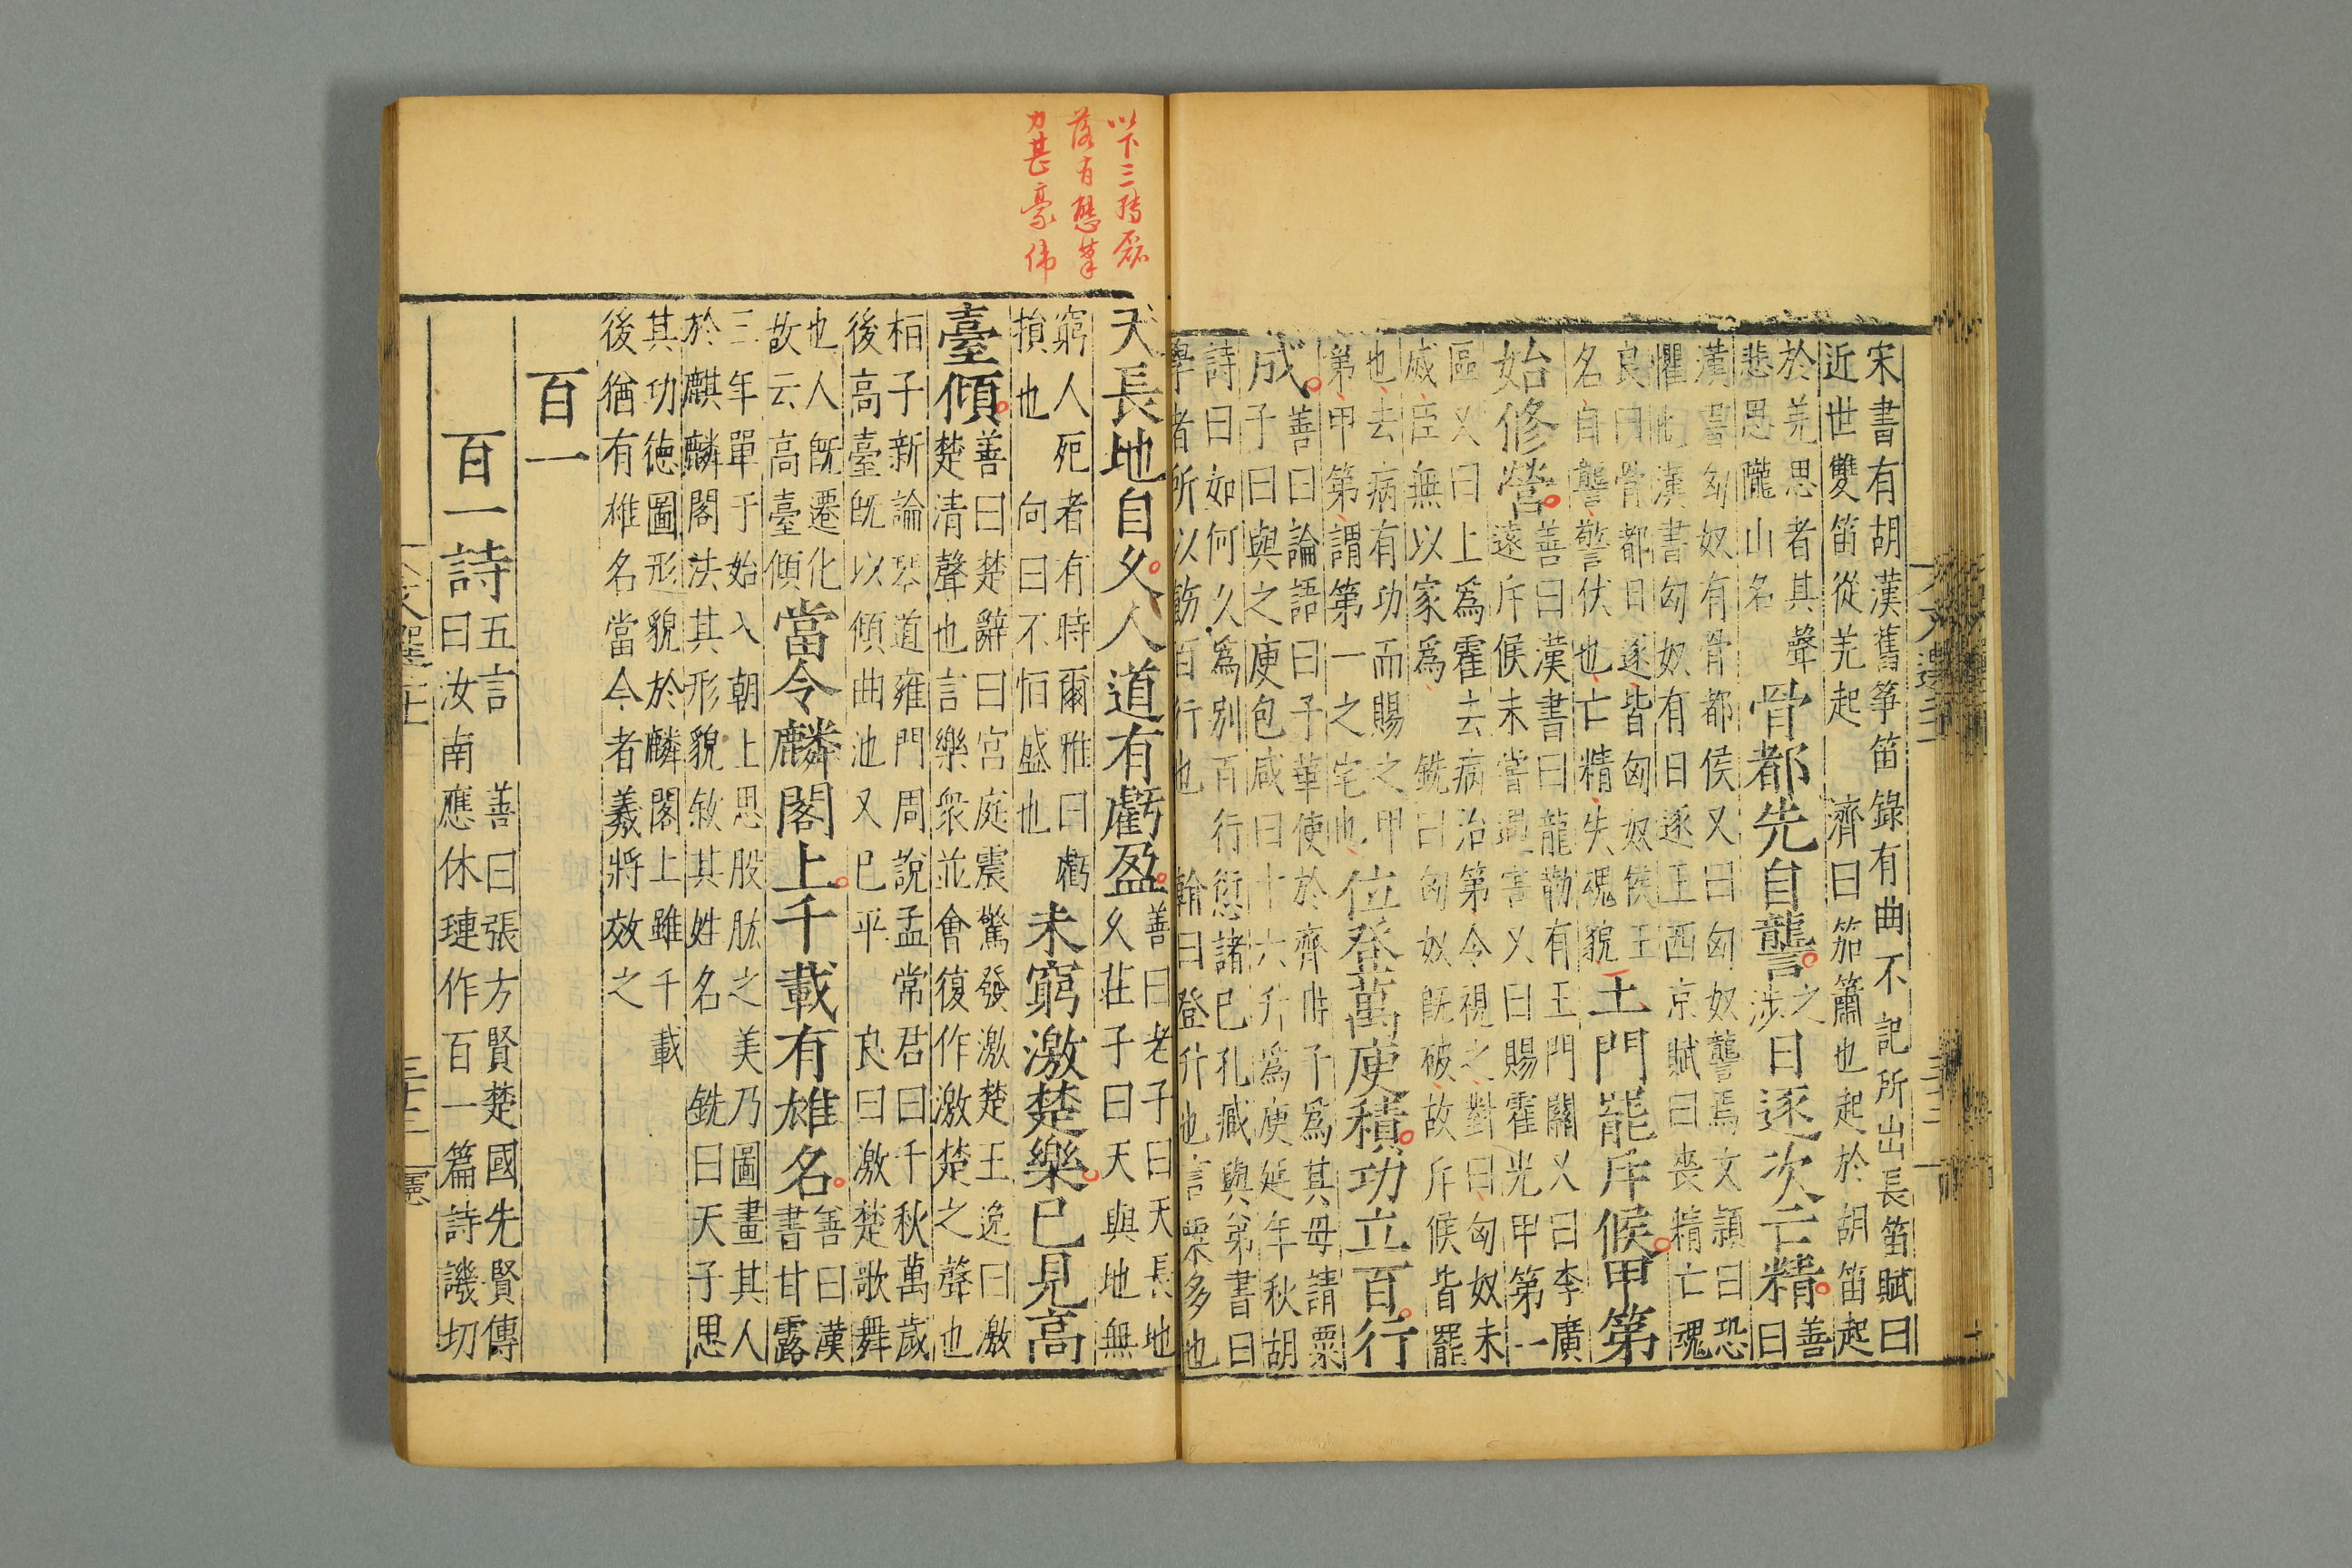 宋書有胡漢舊箏笛錄有曲不記所出長笛賦曰
近世雙笛從羌起　濟曰笳簫也起於胡笛起
於羌思者其聲
悲思隴山名
骨都先自讋
之
涉
日逐次亡精
善
曰
漢書匈奴有骨都侯又曰匈奴讋焉文穎曰恐
懼也漢書匈奴有日逐王西京賦曰喪精亡魂
良曰骨都日逐皆匈奴侯王
名自讋警伏也亡精失魂貌
玉門罷斥候甲第
始修營
善曰漢書曰龍勒有玉門關又曰李廣
遠斥候未嘗遇害又曰賜霍光甲第一
區又曰上爲霍去病治第令視之對曰匈奴未
滅臣無以家爲　銑曰匈奴旣破故斥候皆罷
也去病有功而賜之甲
第甲第謂第一之宅也
位登萬庾積功立百行
成
善曰論語曰子華使於齊冉子爲其母請粟
子曰與之庾包咸曰十六斗爲庾延年秋胡
詩曰如何久爲別百行愆諸己孔臧與弟書曰
學者所以飭百行也　翰曰登升也言粟多也
以下三段磊
落有態筆
力甚豪偉
天長地自久人道有虧盈
善曰老子曰天長地
久莊子曰天與地無
窮人死者有時爾雅曰虧
損也　向曰不恒盛也
未窮激楚樂已見高
臺傾
善曰楚辭曰宮庭震驚發激楚王逸曰激
楚清聲也言樂衆並會復作激楚之聲也
桓子新論琴道雍門周說孟常君曰千秋萬歲
後高臺旣以傾曲池又已平　良曰激楚歌舞
也人旣遷化
故云高臺傾
當令麟閣上千載有雄名
善曰漢
書甘露
三年單于始入朝上思股肱之美乃圖畫其人
於麒麟閣法其形貌敘其姓名　銑曰天子思
其功德圖形貌於麟閣上雖千載
後猶有雄名當今者義將效之
百一
百一詩
五言　善曰張方賢楚國先賢傳
曰汝南應休璉作百一篇詩譏切